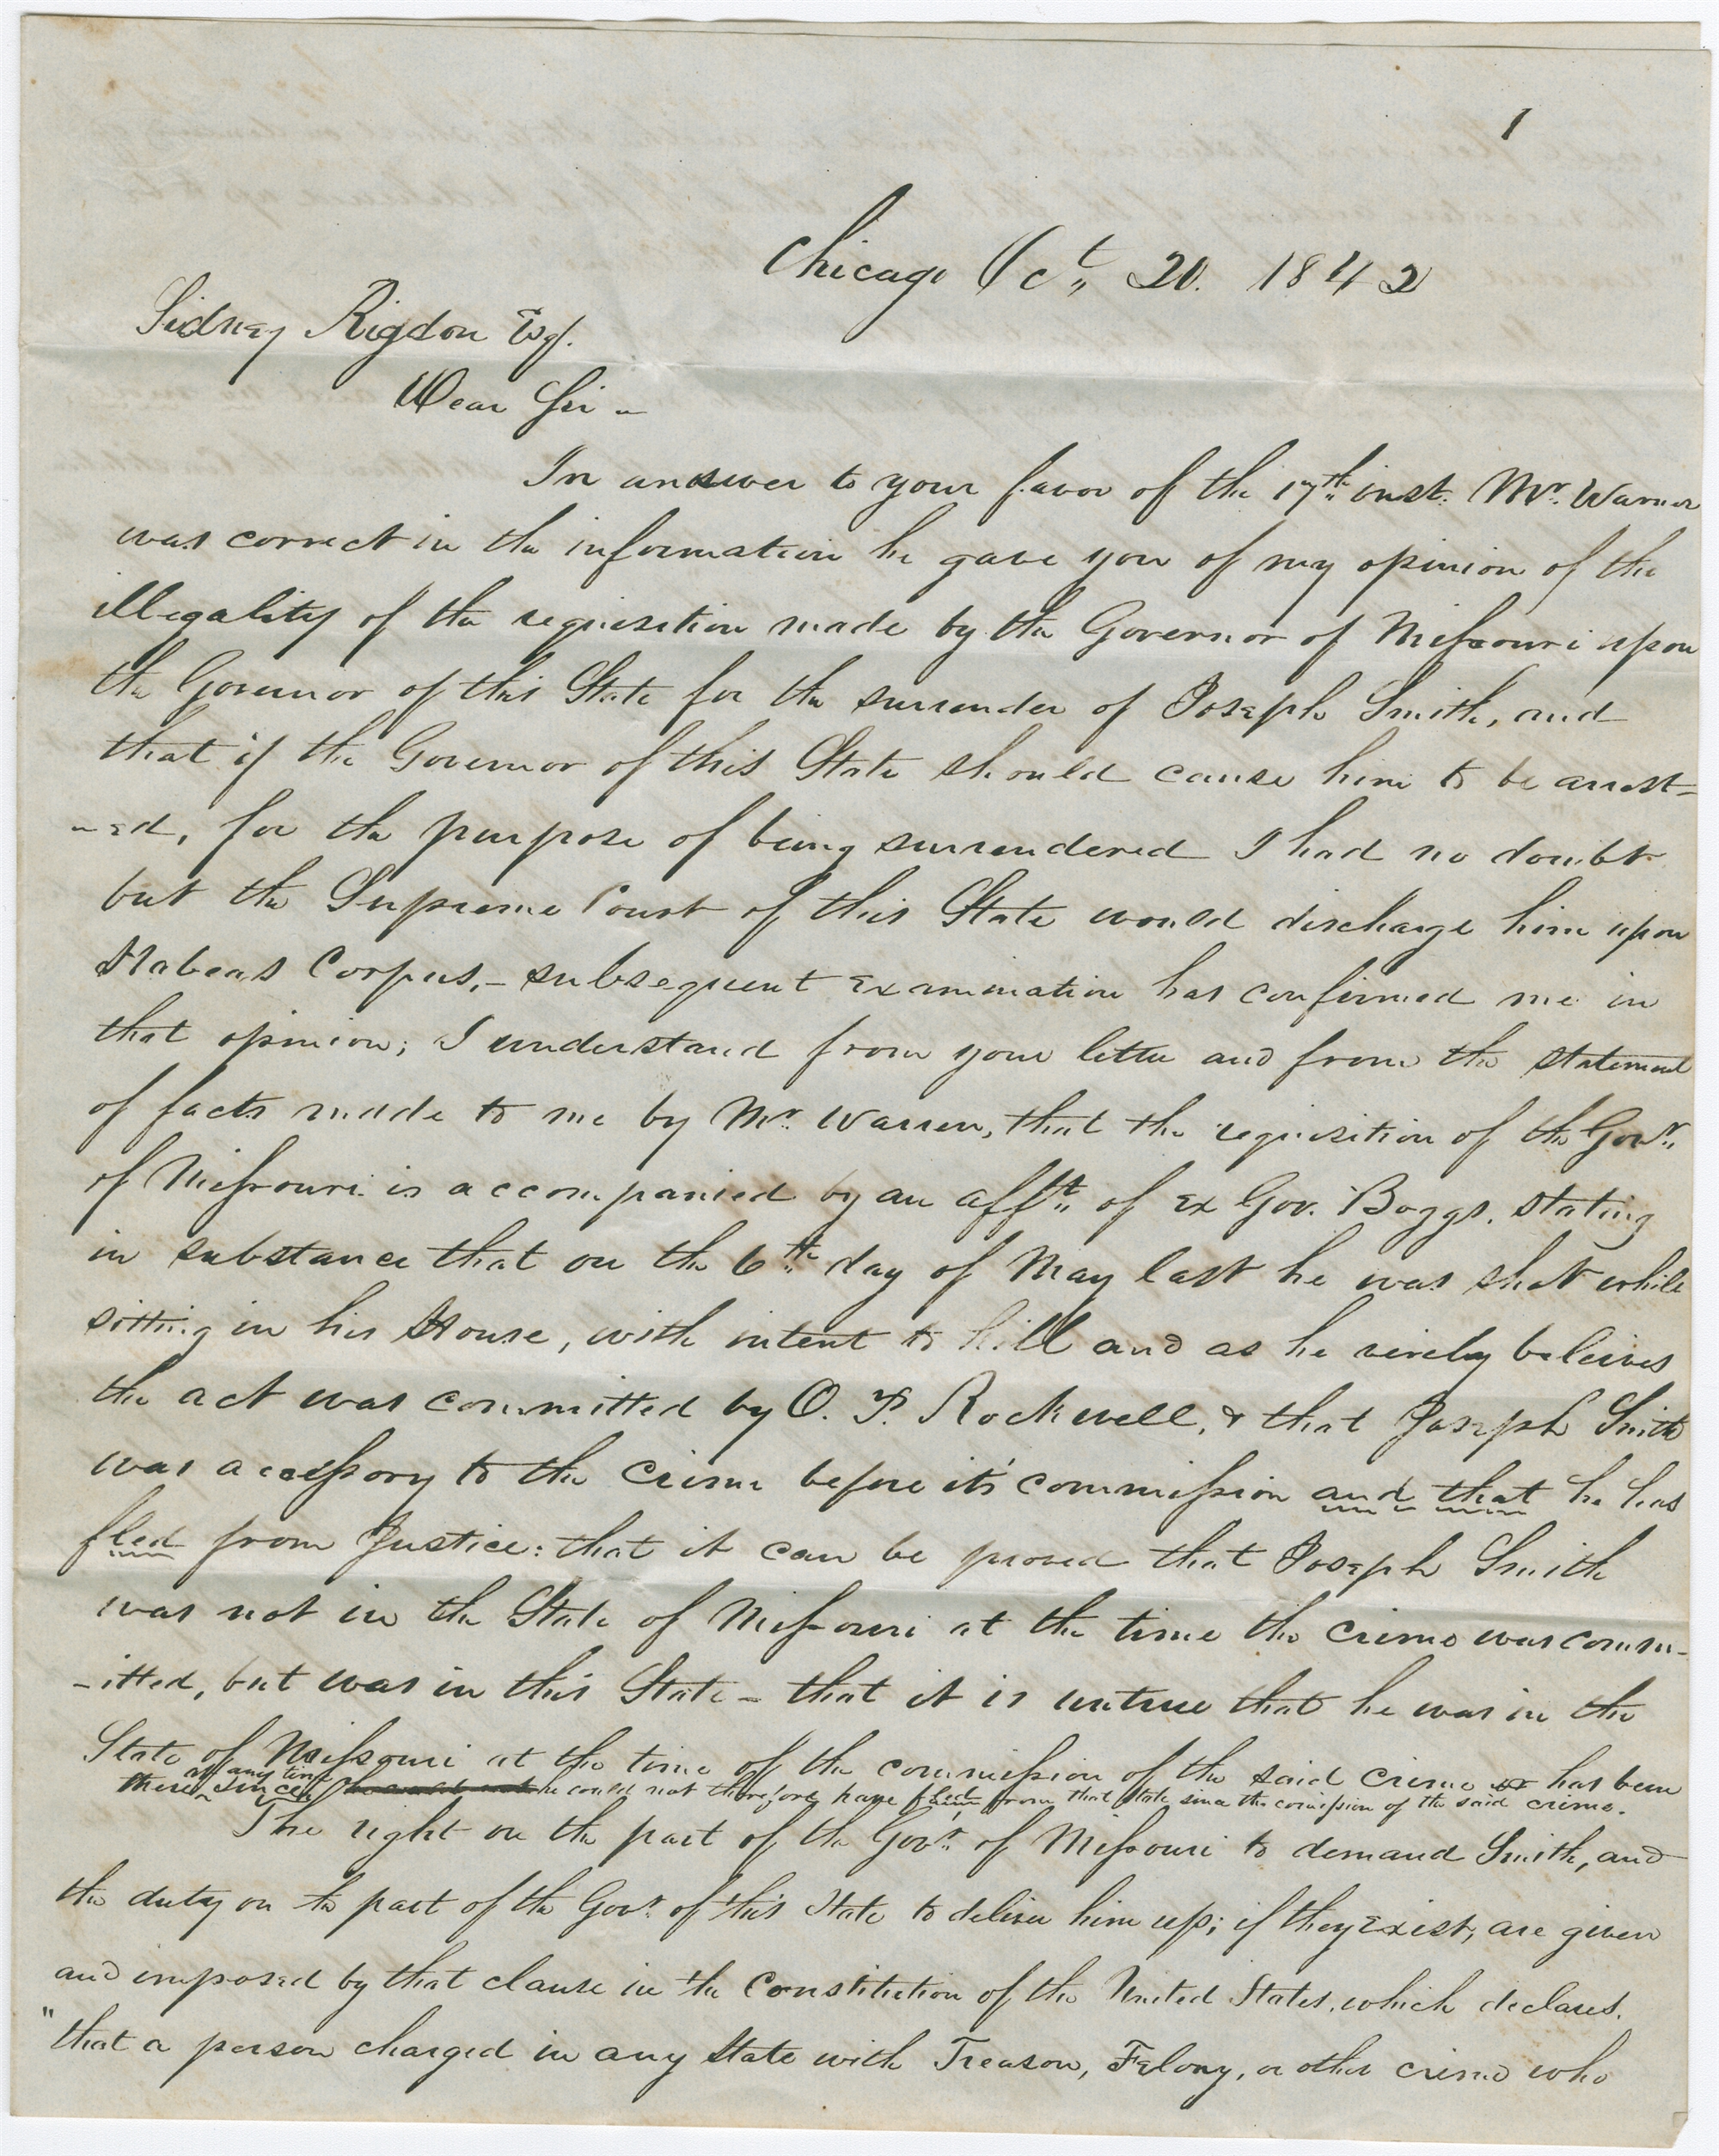 1
Chicago Oct,, 20. 1842
Sidney Rigdon Esq.
Dear Sir –
In answer to your favor of the 17th,, inst. Mr. Warner
was correct in the information he gave you of my opinion of the
illegality of the requisition made by the Governor of Missouri upon
the Governor of this State for the surrender of Joseph Smith, and
that if the Governor of this State should cause him to be arrest-
-ed, for the purpose of being surrendered I had no doubt
but the Supreme Court of this State would discharge him upon
Habeas Corpus,- subsequent Examination has confirmed me in
that opinion; I understand from your letter and from the statement
of facts made to me by Mr. Warren, that the requisition of the Govr.,,
of Missouri is accompanied by an afft,, of Ex Gov. Boggs, stating
in substance that on the 6th,, day of May last he was shot while
sitting in his House, with intent to kill and as he verely beleives
the act was committed by O. P. Rockwell, & that Joseph Smith
was accessory to the crime before it's commission and that he has
fled from Justice: that it can be proved that Joseph Smith
was not in the State of Missouri at the time the crime was comm-
-itted, but was in this State – that it is untrue that he was in the
State of Missouri at the time of the commission of the said crime or has been
there at any time since, he could not therefore have fled from that State since the comission of the said crime.
The right on the part of the Govr.,, of Missouri to demand Smith, and
the duty on the part of the Govr. of this State to deliver him up; if they Exist, are given
and imposed by that clause in the Constitution of the United States, which declares.
"that a person charged in any State with Treason, Felony, or other crime who